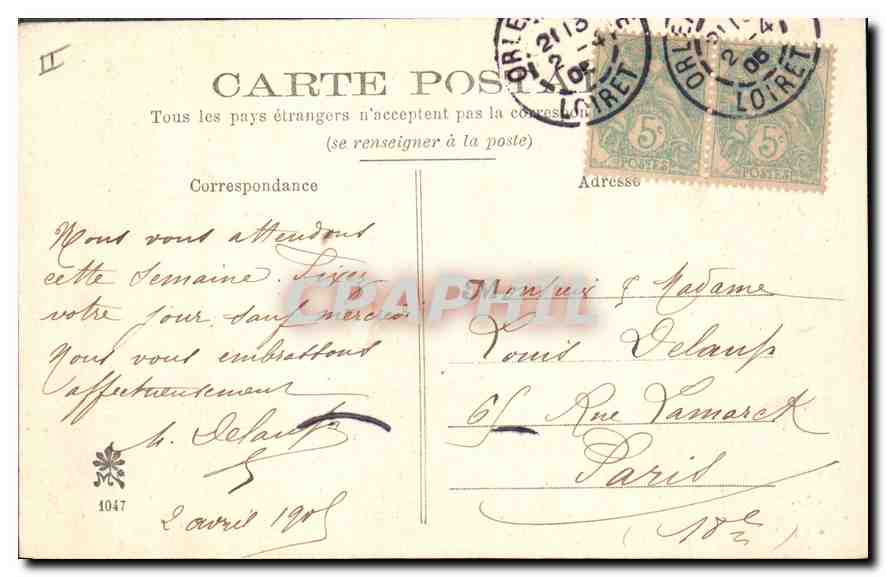 II
CARTE POSTA
Tous les pays étrangers n'acceptent pas la correspon
(se renseigner à la poste)
Correspondance
Adresse
ORLE
21 13
2 - 4
05
LOIRET
ORLE
21 13
2 - 4
05
LOIRET
5c
POSTES
5c
POSTES
Nous vous attendons
cette semaine. Fixez
votre jour sauf mercredi
Nous vous embrassons
affectueusement
M. Delaup
2 avril 1905
M
1047
Monsieur & Madame
Louis Delaup
65 Rue Lamarck
Paris
(18e)
CPAPHIL